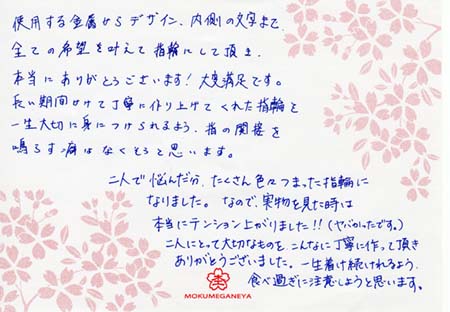 使用する金属からデザイン、内側の文字まで、
全ての希望を叶えて指輪にして頂き、
本当にありがとうございます！大変満足です。
長い期間かけて丁寧に作り上げてくれた指輪を
一生大切に身につけられるよう、指の関接を
鳴らす癖はなくそうと思います。
二人で悩んだ分、たくさん色々つまった指輪に
なりました。なので、実物を見た時は
本当にテンション上がりました!!（ヤバかったです。）
二人にとって大切なものを、こんなに丁寧に作って頂き
ありがとうございました。一生着け続けれるよう、
食べ過ぎに注意しようと思います。
MOKUMEGANEYA